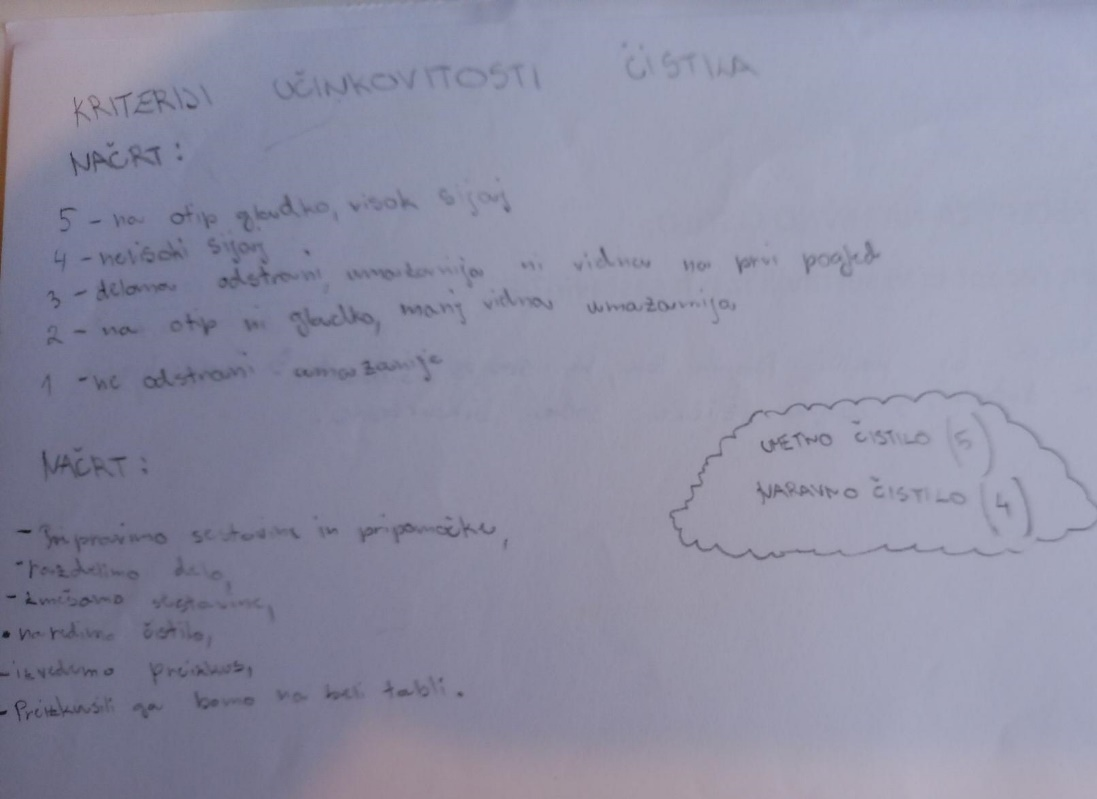 KRITERIJI UČINKOVITOSTI ČISTILA
NAČRT:
5 - na otip gladko, visok sijaj
4 - nevisoki sijaj
3 - delama odstrani, umazanija ni vidna na prvi pogled
2 - na otip ni gladko, manj vidna umazanija,
1 - ne odstrani umazanije
NAČRT:
- Pripravimo sestavine in pripomočke,
- razdelimo delo,
- zmešamo sestavine,
• naredimo čistilo,
- izvedemo preizkus,
- Preizkusili ga bomo na beli tabli.
UMETNO ČISTILO (5)
NARAVNO ČISTILO (4)